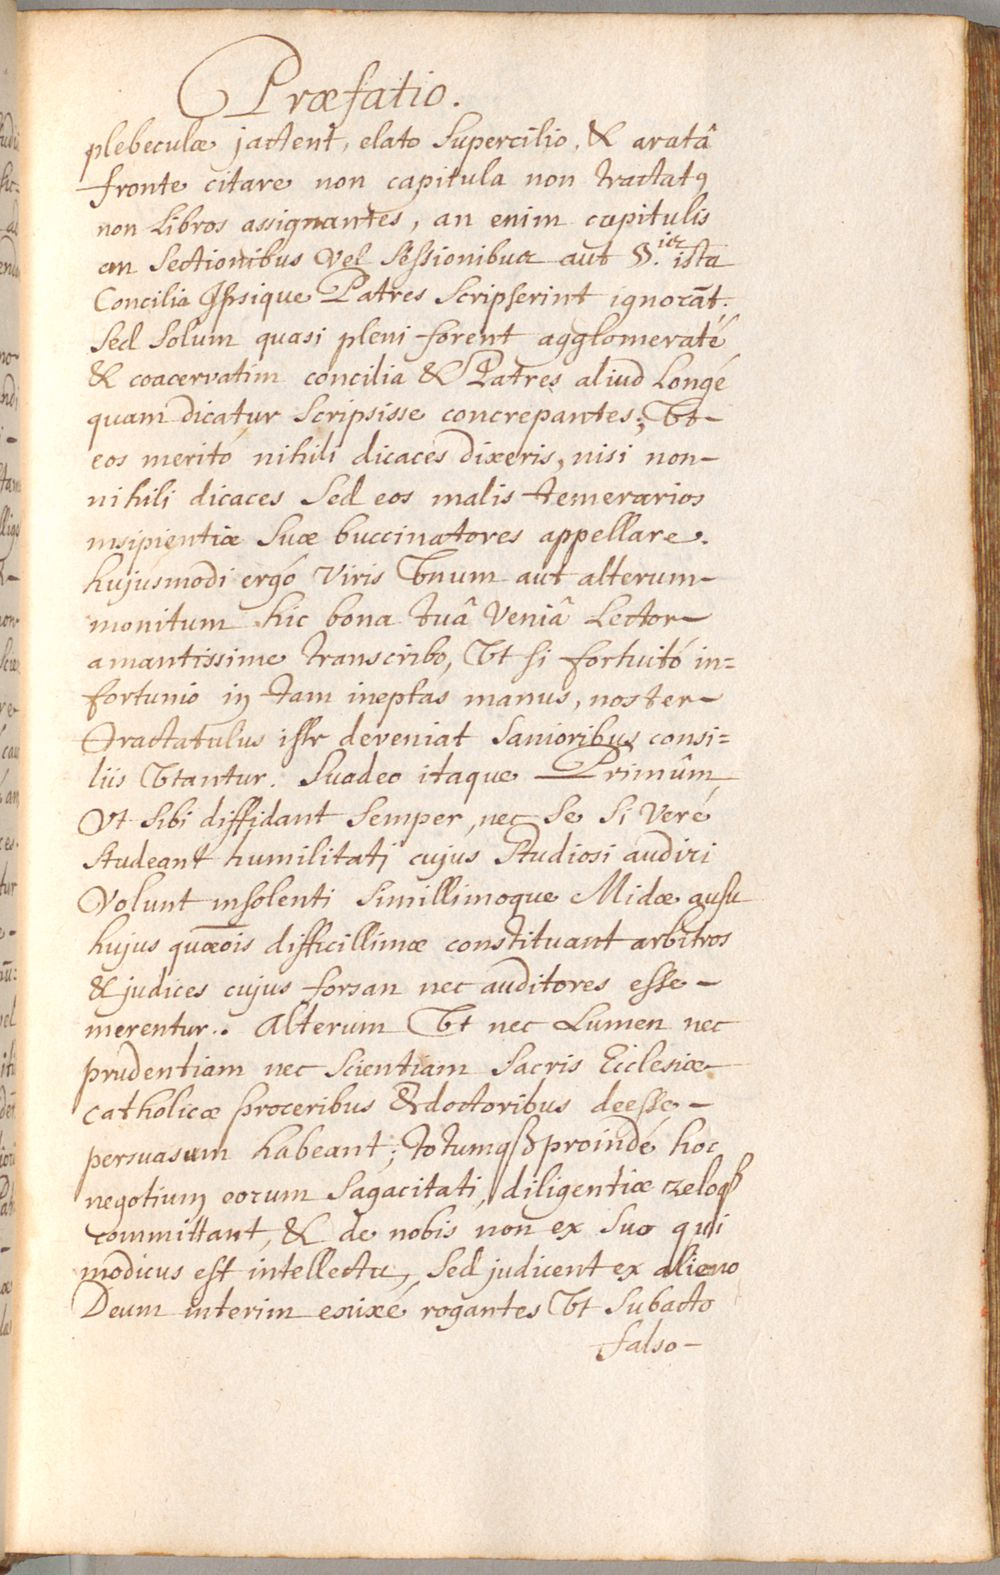 Præfatio.
plebeculæ jactent, elato Supercilio, & aratâ
fronte citare non capitula non tractatꝯ
non Libros assignantes, an enim capitulis
an Sectionibus Vel Sessionibus aut §.is ista
Concilia Ipsique Patres Scripserint ignorāt;
Sed Solum quasi pleni forent agglomeraté
& coacervatim concilia & Patres aliud Longé
quam dicatur Scripsisse concrepantes; Vt
eos meritó nihili dicaces dixeris, nisi non-
nihili dicaces Sed eos malis temerarios
insipientiæ Suæ buccinatores appellare.
hujusmodi ergó Viris Vnum aut alterum
monitum hic bona tuâ Veniâ Lector
amantissime transcribo, Vt si fortuitó in=
fortunio in tam ineptas manus, noster
Tractatulus iste deveniat Sanioribus consi=
liis Vtantur. Suadeo itaque Primûm
Vt Sibi diffidant Semper, nec Se Si Veré
Studeant humilitati cujus Studiosi audiri
Volunt insolenti Simillimoque Midæ ausu
hujus quæōis difficillimæ constituant arbitros
& judices cujus forsan nec auditores esse
merentur. Alterum Vt nec Lumen nec
prudentiam nec Scientiam Sacris Ecclesiæ
catholicæ proceribus & doctoribus deesse
persuasum habeant; totumqꝫ proindé hoc
negotium eorum Sagacitati, diligentiæ zeloqꝫ
committant, & de nobis non ex Suo qui
modicus est intellectu, Sed judicent ex alieno
Deum interim enixé rogantes Vt Subacto
falso